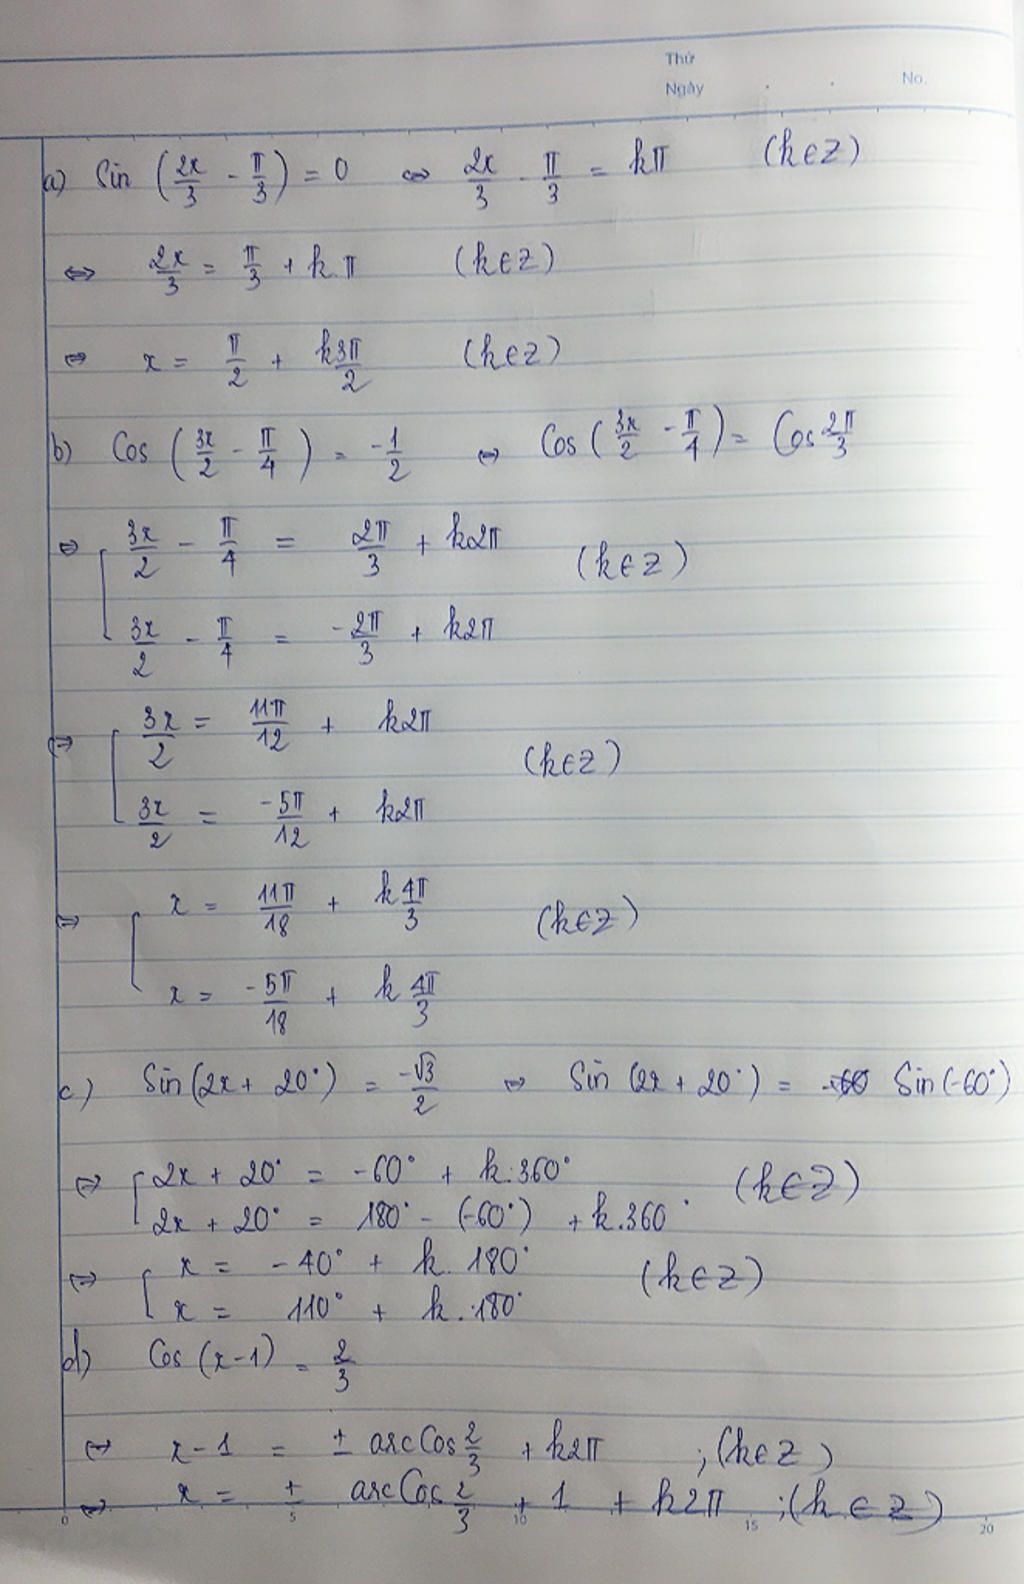 Thứ
Ngày . . No.
a) Sin (2x/3 - π/3) = 0 ⇔ 2x/3 - π/3 = kπ (k∈Z)
⇔ 2x/3 = π/3 + k.π (k∈Z)
⇔ x = π/2 + k3π/2 (k∈Z)
b) Cos (3x/2 - π/4) = -1/2 ⇔ Cos (3x/2 - π/4) = Cos 2π/3
⇔ [ 3x/2 - π/4 = 2π/3 + k2π (k∈Z)
3x/2 - π/4 = -2π/3 + k2π
⇔ [ 3x/2 = 11π/12 + k2π (k∈Z)
3x/2 = -5π/12 + k2π
⇔ [ x = 11π/18 + k 4π/3 (k∈Z)
x = -5π/18 + k 4π/3
c) Sin(2x + 20°) = -√3/2 ⇔ Sin (2x + 20°) = Sin(-60°)
⇔ [ 2x + 20° = -60° + k.360° (k∈Z)
2x + 20° = 180° - (-60°) + k.360°
⇔ [ x = -40° + k.180° (k∈Z)
x = 110° + k.180°
d) Cos (x-1) = 2/3
⇔ x-1 = ± arcCos 2/3 + k2π ; (k∈Z)
⇔ x = ± arcCos 2/3 + 1 + k2π ; (k∈Z)
0 5 10 15 20